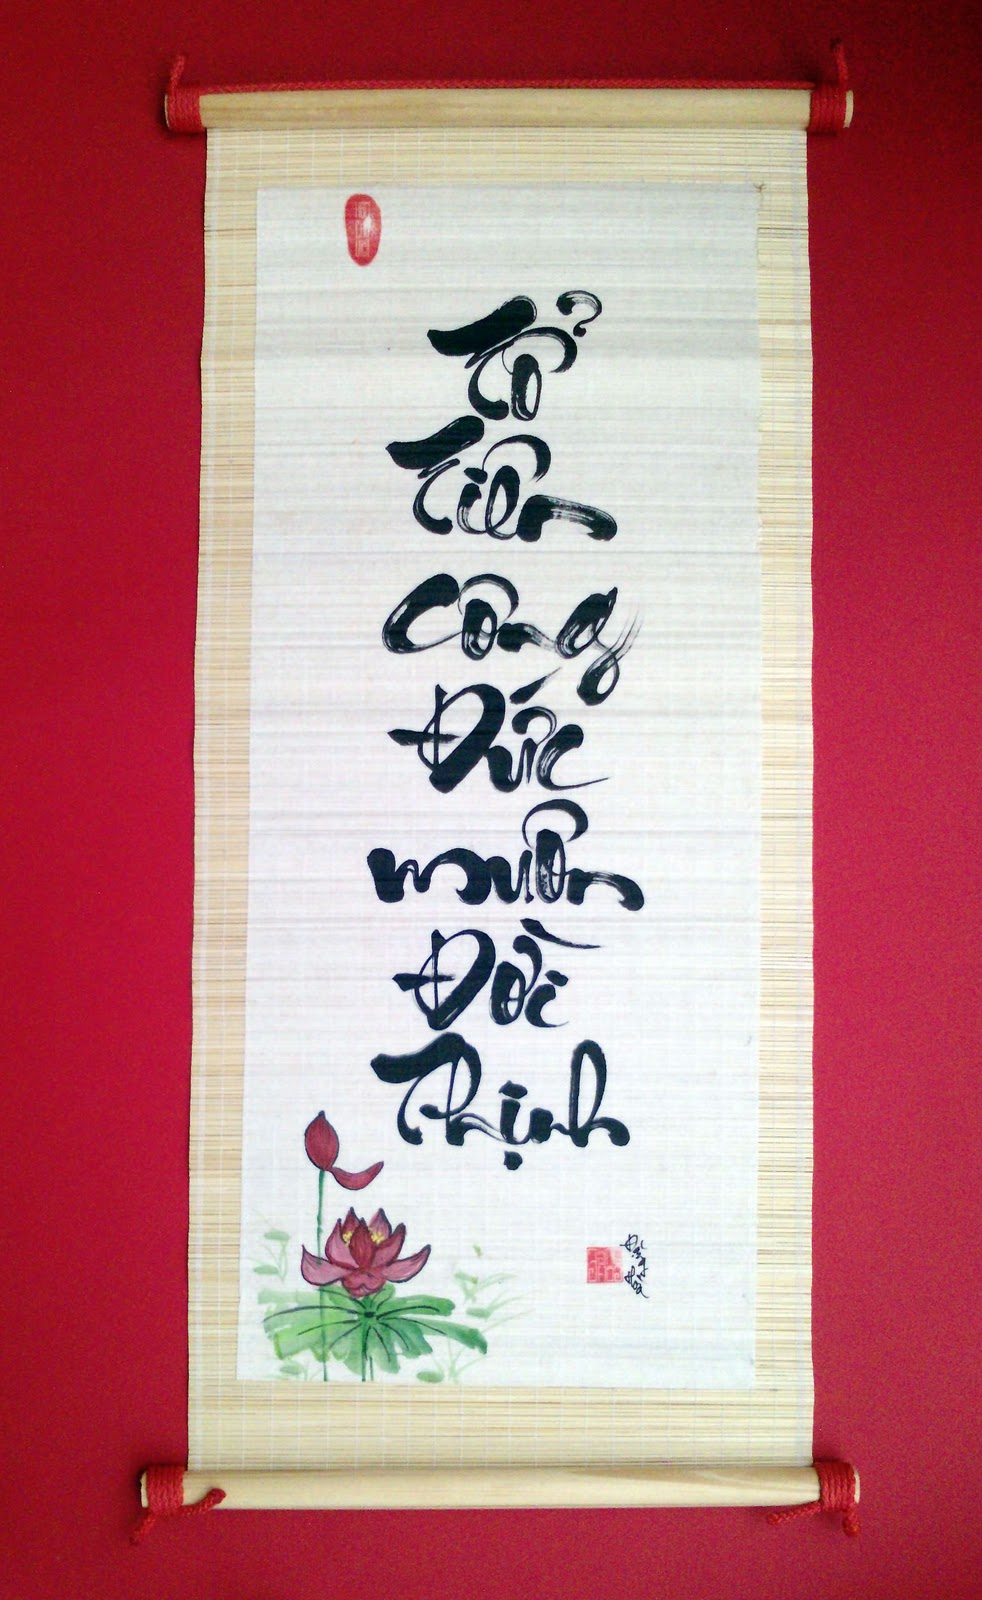 Tổ
Tiên
Công
Đức
muôn
Đời
Thịnh